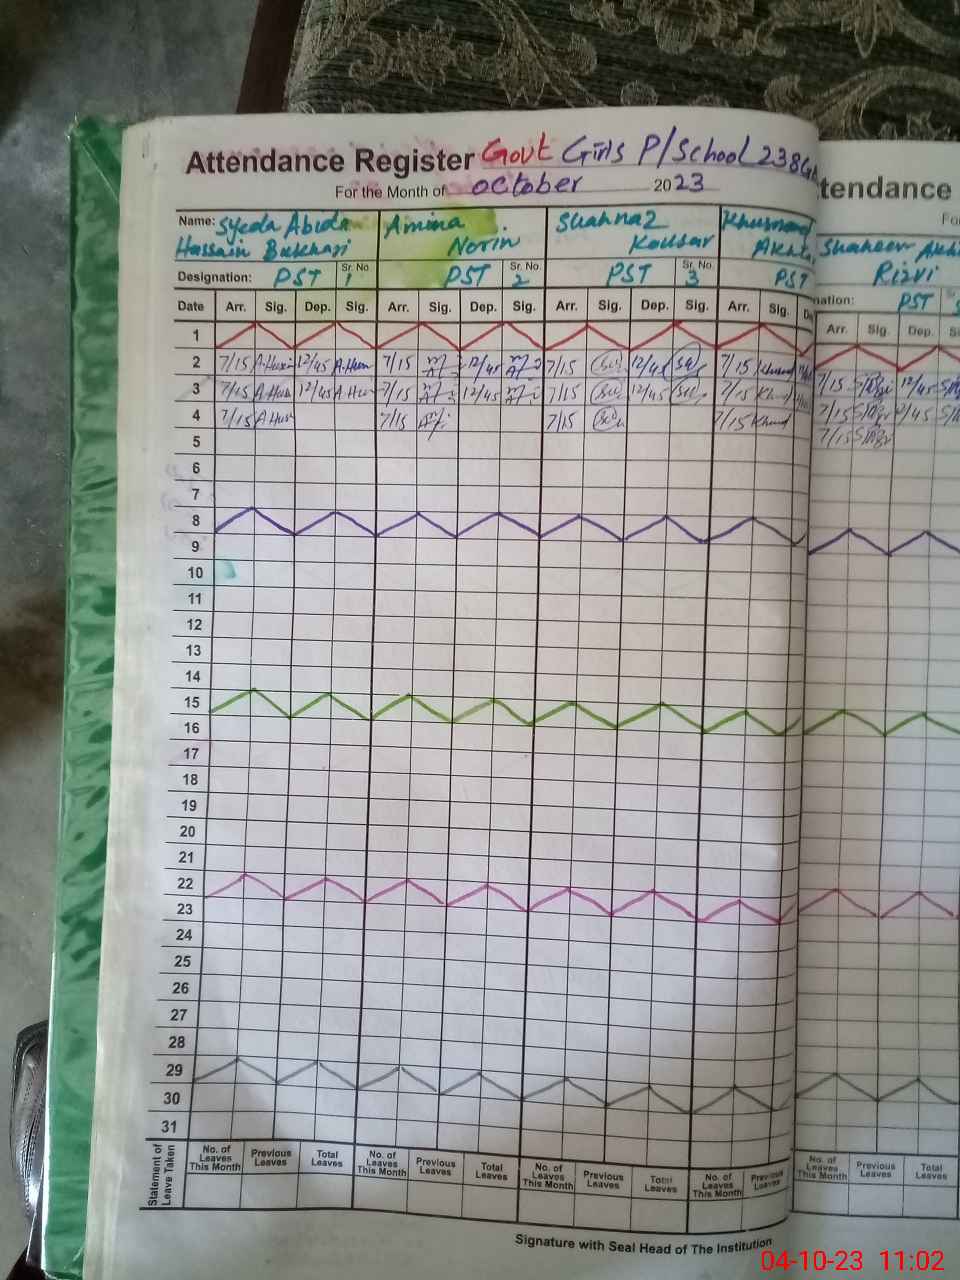 Attendance Register Govt Girls P/School 238
For the Month of October 2023
Name: Syeda Abida Hassain Bukhari
Amina Norin
Shahnaz Kousar
Akhta
Designation: PST Sr. No. 1 PST Sr. No. 2 PST Sr. No. 3 PST
Date Arr. Sig. Dep. Sig. Arr. Sig. Dep. Sig. Arr. Sig. Dep. Sig. Arr. Sig. De
1
2 7/15 A.Hus 12/45 A.Hus 7/15 12/45 7/15 12/45 7/15 Khusd
3 7/15 A.Hus 12/45 A.Hus 7/15 12/45 7/15 12/45 7/15 Khusd
4 7/15 A.Hus 7/15 7/15 7/15 Khusd
5
6
7
8
9
10
11
12
13
14
15
16
17
18
19
20
21
22
23
24
25
26
27
28
29
30
31
Statement of Leave Taken
No. of Leaves This Month Previous Leaves Total Leaves No. of Leaves This Month Previous Leaves Total Leaves No. of Leaves This Month Previous Leaves Total Leaves No. of Leaves This Month Previous Leaves
Signature with Seal Head of The Institution
tendance
Fo
Shaheen Akh
Rizvi
nation: PST S
Arr. Sig. Dep. S
7/15 12/45
7/15 2/45
7/15
No. of Leaves This Month Previous Leaves Total Leaves
04-10-23 11:02